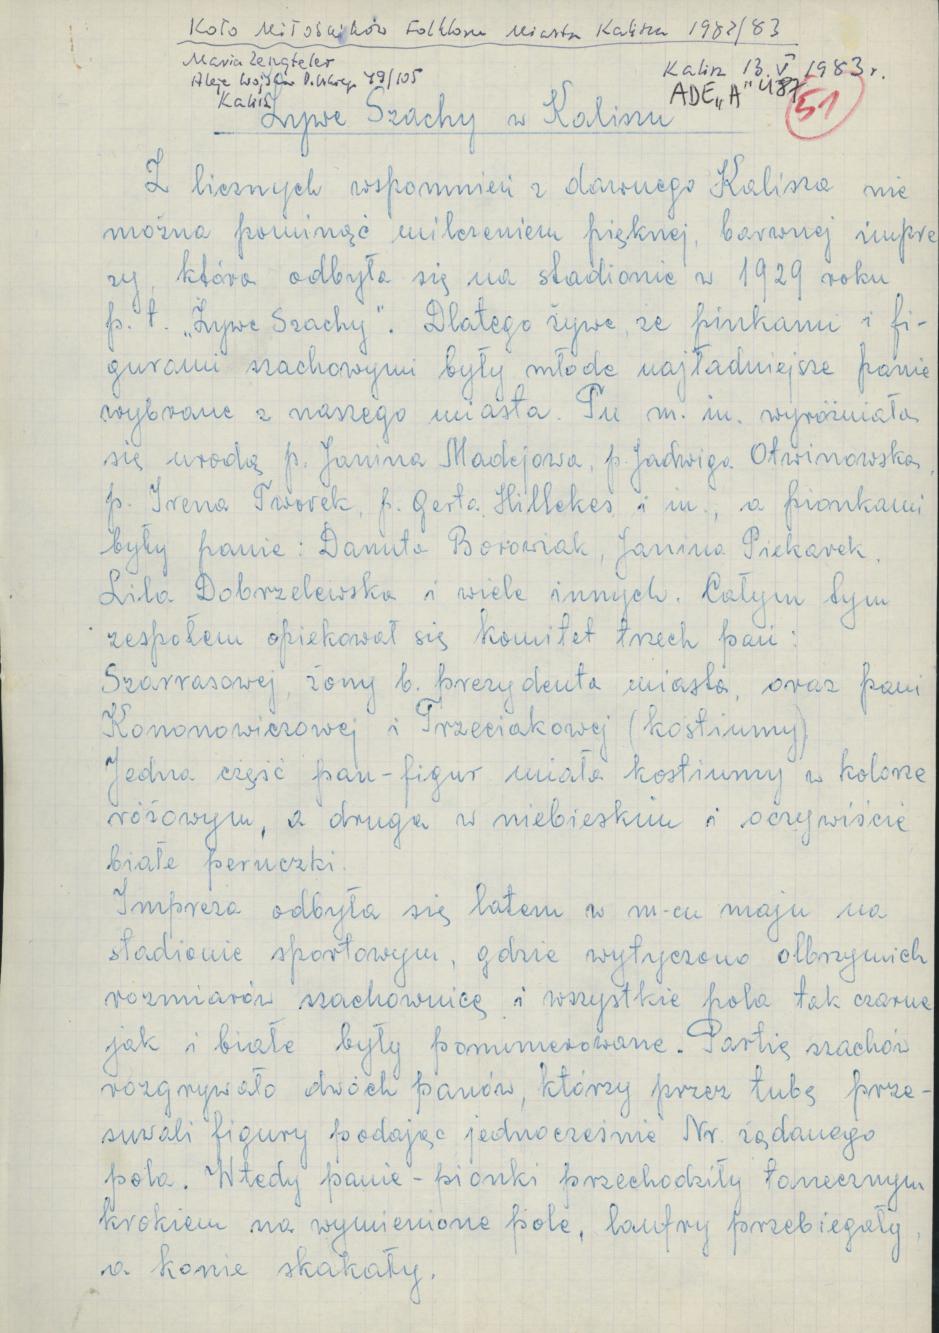 Koło Miłośników Folkloru Miasta Kalisza 1982/83
Maria Zengteler
Aleje Wojska Polskiego 79/105
Kalisz
Kalisz 13.V.1983 r.
ADE „A" 487
51
Żywe Szachy w Kaliszu
Z licznych wspomnień z dawnego Kalisza nie
można pominąć milczeniem pięknej, barwnej impre
zy, która odbyła się na stadionie w 1929 roku
p. t. „Żywe Szachy". Dlatego żywe, że pinkami i fi-
gurami szachowymi były młode najładniejsze panie
wybrane z naszego miasta. Tu m. in. wyróżniała
się urodą p. Janina Madejowa, p. Jadwiga Otwinowska,
p. Irena Tworek, p. Gerta Hillekes i in., a pionkami
były panie: Danuta Borowiak, Janina Piekarek,
Lila Dobrzelewska i wiele innych. Całym tym
zespołem opiekował się komitet trzech pań:
Szarrasowej, żony b. prezydenta miasta, oraz pani
Kononowiczowej i Trzeciakowej (kostiumy)
Jedna część pań-figur miała kostiumy w kolorze
różowym, a druga w niebieskim i oczywiście
białe peruczki.
Impreza odbyła się latem w m-cu maju na
stadionie sportowym, gdzie wytyczono olbrzymich
rozmiarów szachownicę i wszystkie pola tak czarne
jak i białe były ponumerowane. Partię szachów
rozgrywało dwóch panów, którzy przez tubę prze-
suwali figury podając jednocześnie Nr. żądanego
pola. Wtedy panie-pionki przechodziły tanecznym
krokiem na wymienione pole, laufry przebiegały,
a konie skakały.